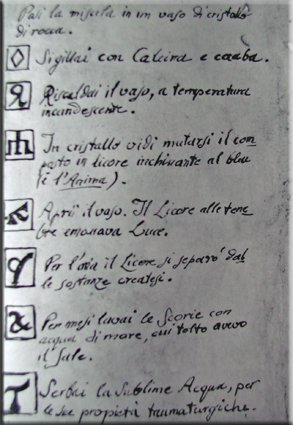 Posi la miscela in un vaso di cristallo
di rocca.
Sigillai con Calcina e
Riscaldai il vaso, a temperatura
incandescente.
In cristallo vidi mutarsi il com
posto in licore inchinante al bleu
(è l'Anima).
Aprii il vaso. Il Licore alle tene_
bre emanava Luce.
Per l'aria il Licore, si separò dal_
le sostanze createsi.
Per mesi lavai le Scorie con
acqua di mare, cui tolto avevo
il sale.
Serbai la Sublime Acqua, per
le sue proprietà taumaturgiche.